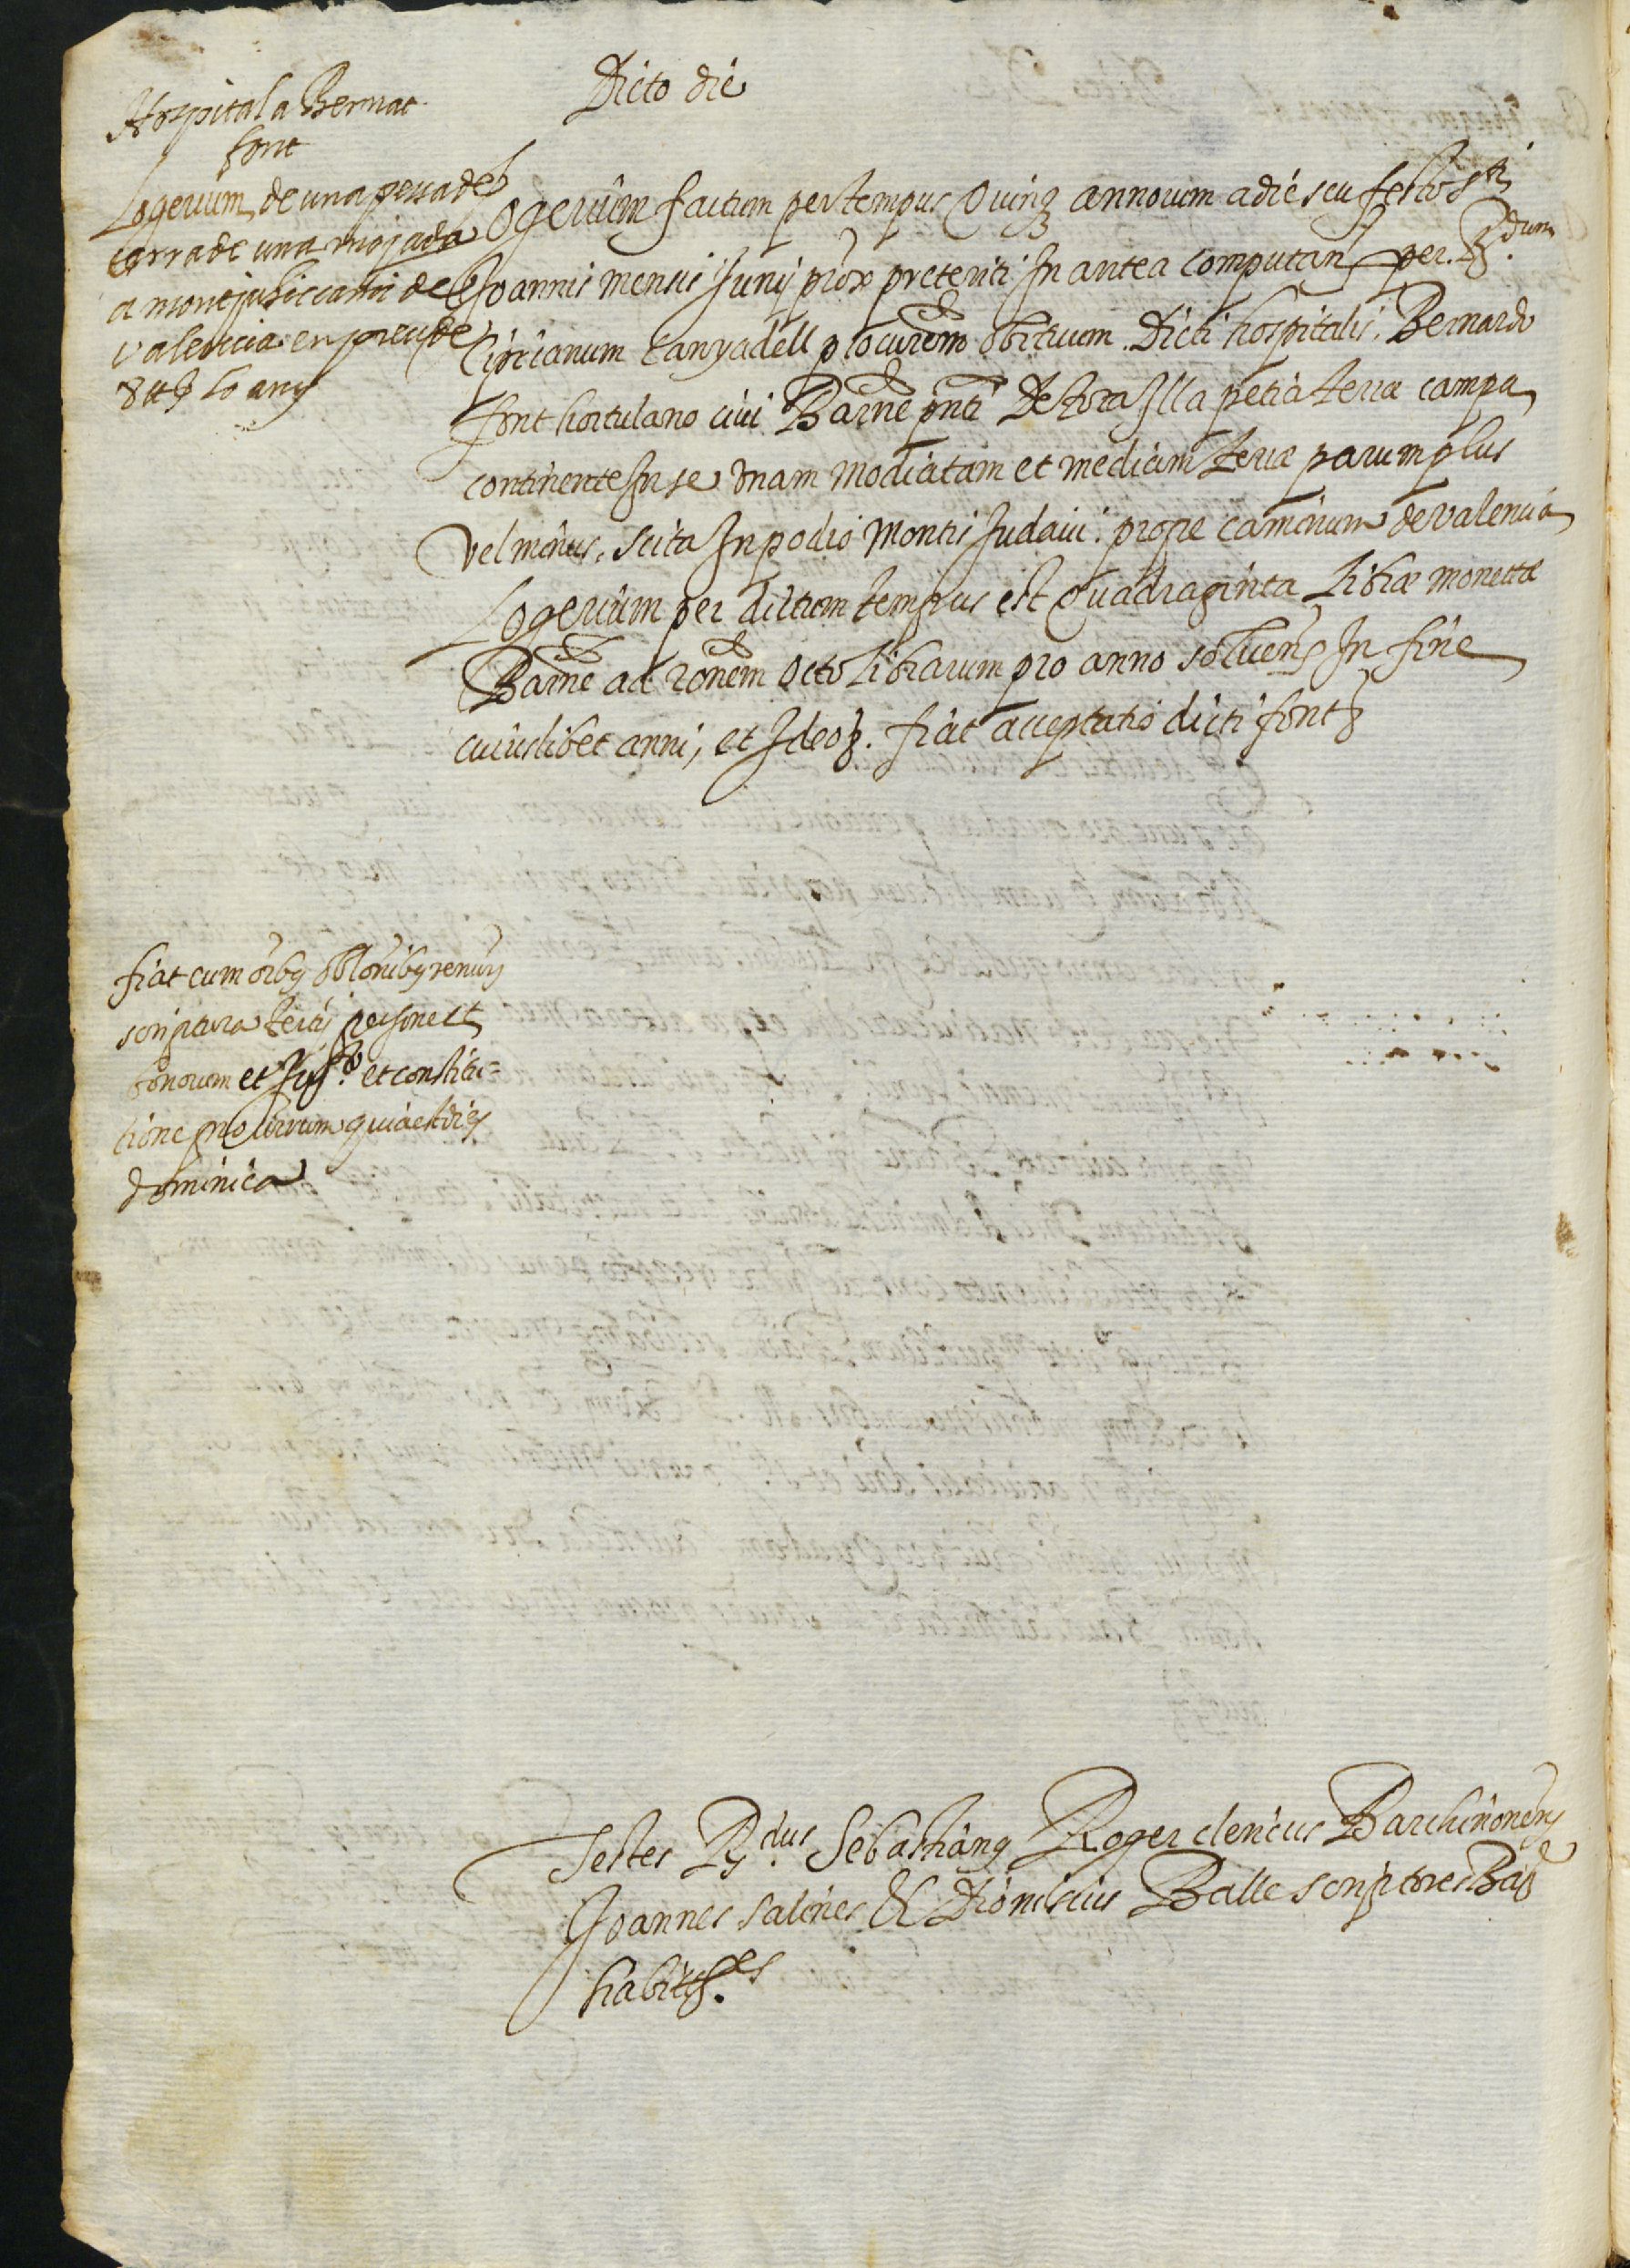 Dicto die
Hospital a Bernat
font
Logerium de una pessa de
terra de una mojada
a montjuhic cami de
valencia en preu de
8 ll lo any
Logerium factum per tempus Quinq annorum a die seu festo Sti
Joannis mensis Junij prox preteriti In antea computan per Rdum
Ciprianum Canyadell procurem obituum Dicti hospitalis. Bernardo
font hortulano civi Barne pnti De tota Illa petia terræ campa
continente In se Vnam modiatam et mediam terræ parum plus
vel minus, scita In podio Montis Judaici. prope caminum de valencia
Logerium per dictum tempus est Quadraginta Libræ monettæ
Barne ad ronem octo Librarum pro anno solvens In fine
cuiuslibet anni, et Ideo. fiat acceptatio dicti font
fiat cum oibs oblonibs
scriptura tertij
bonorum et Jur.º et constitu=
tione quia est dies
dominica
Testes Rdus Sebastians Roger clericus Barchinonens
Joannes salines & Dionisius Balle scriptores Bar
habites